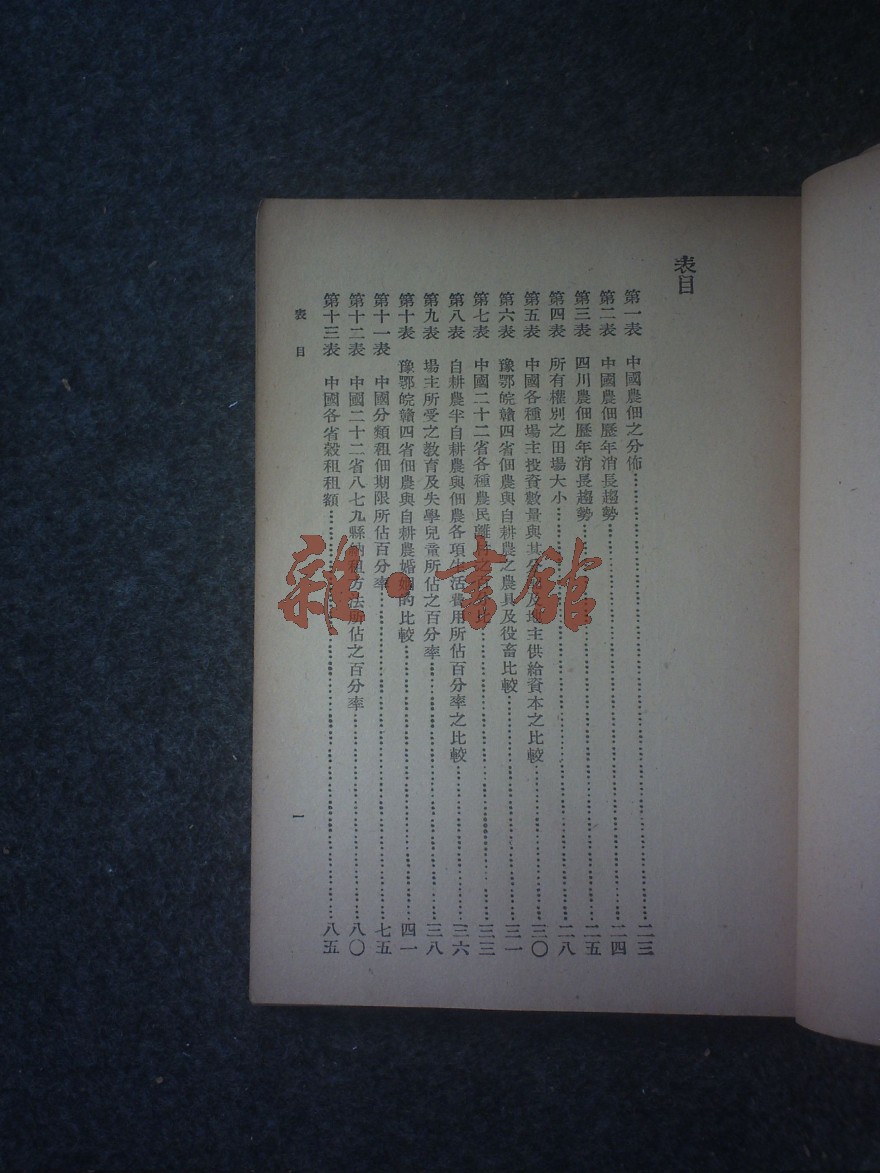 表目
第一表 中國農佃之分佈……二三
第二表 中國農佃歷年消長趨勢……二四
第三表 四川農佃歷年消長趨勢……二五
第四表 所有權別之田場大小……二八
第五表 中國各種場主投資數量與其分配及地主供給資本之比較……三〇
第六表 豫鄂皖贛四省佃農與自耕農之農具及役畜比較……三一
第七表 中國二十二省各種農民離村之百分比……三三
第八表 自耕農半自耕農與佃農各項生活費用所佔百分率之比較……三六
第九表 場主所受之教育及失學兒童所佔之百分率……三八
第十表 豫鄂皖贛四省佃農與自耕農婚姻的比較……四一
第十一表 中國分類租佃期限所佔百分率……七五
第十二表 中國二十二省八七九縣納租方法所佔之百分率……八〇
第十三表 中國各省穀租租額……八五
表目
一
雜·書館